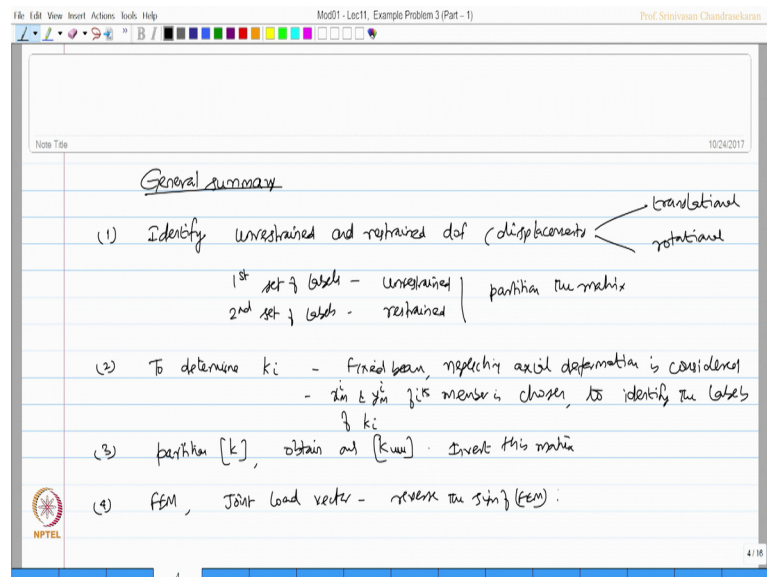 File Edit View Insert Actions Tools Help
Mod01 - Lec11, Example Problem 3 (Part – 1)
Prof. Srinivasan Chandrasekaran
B I
Note Title
10/24/2017
General summary
(1) Identify unrestrained and restrained dof (displacements
translational
rotational
1st set of labels - unrestrained
2nd set of labels - restrained
partition the matrix
(2) To determine ki - Fixed beam, neglecting axial deformation is considered
- x_m^i & y_m^i of ith member is chosen, to identify the labels
of ki
(3) partition [k], obtain [kuu]. Invert this matrix
(4) FEM, Joint load vector - reverse the sign of (FEM):
NPTEL
4 / 16